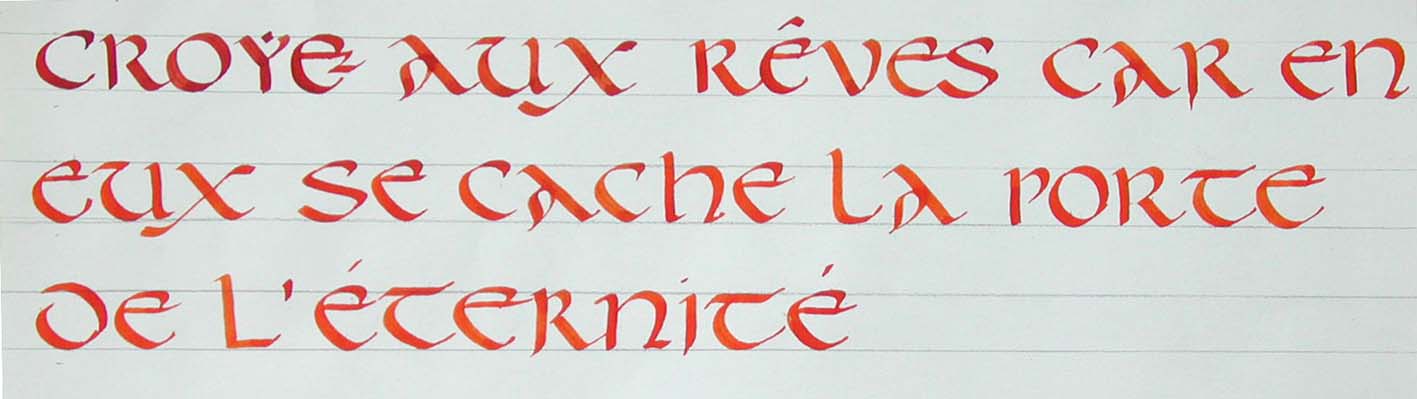 CROŸEZ AUX RÉVES CAR EN
EUX SE CACHE LA PORTE
DE L'ÉTERNITÉ